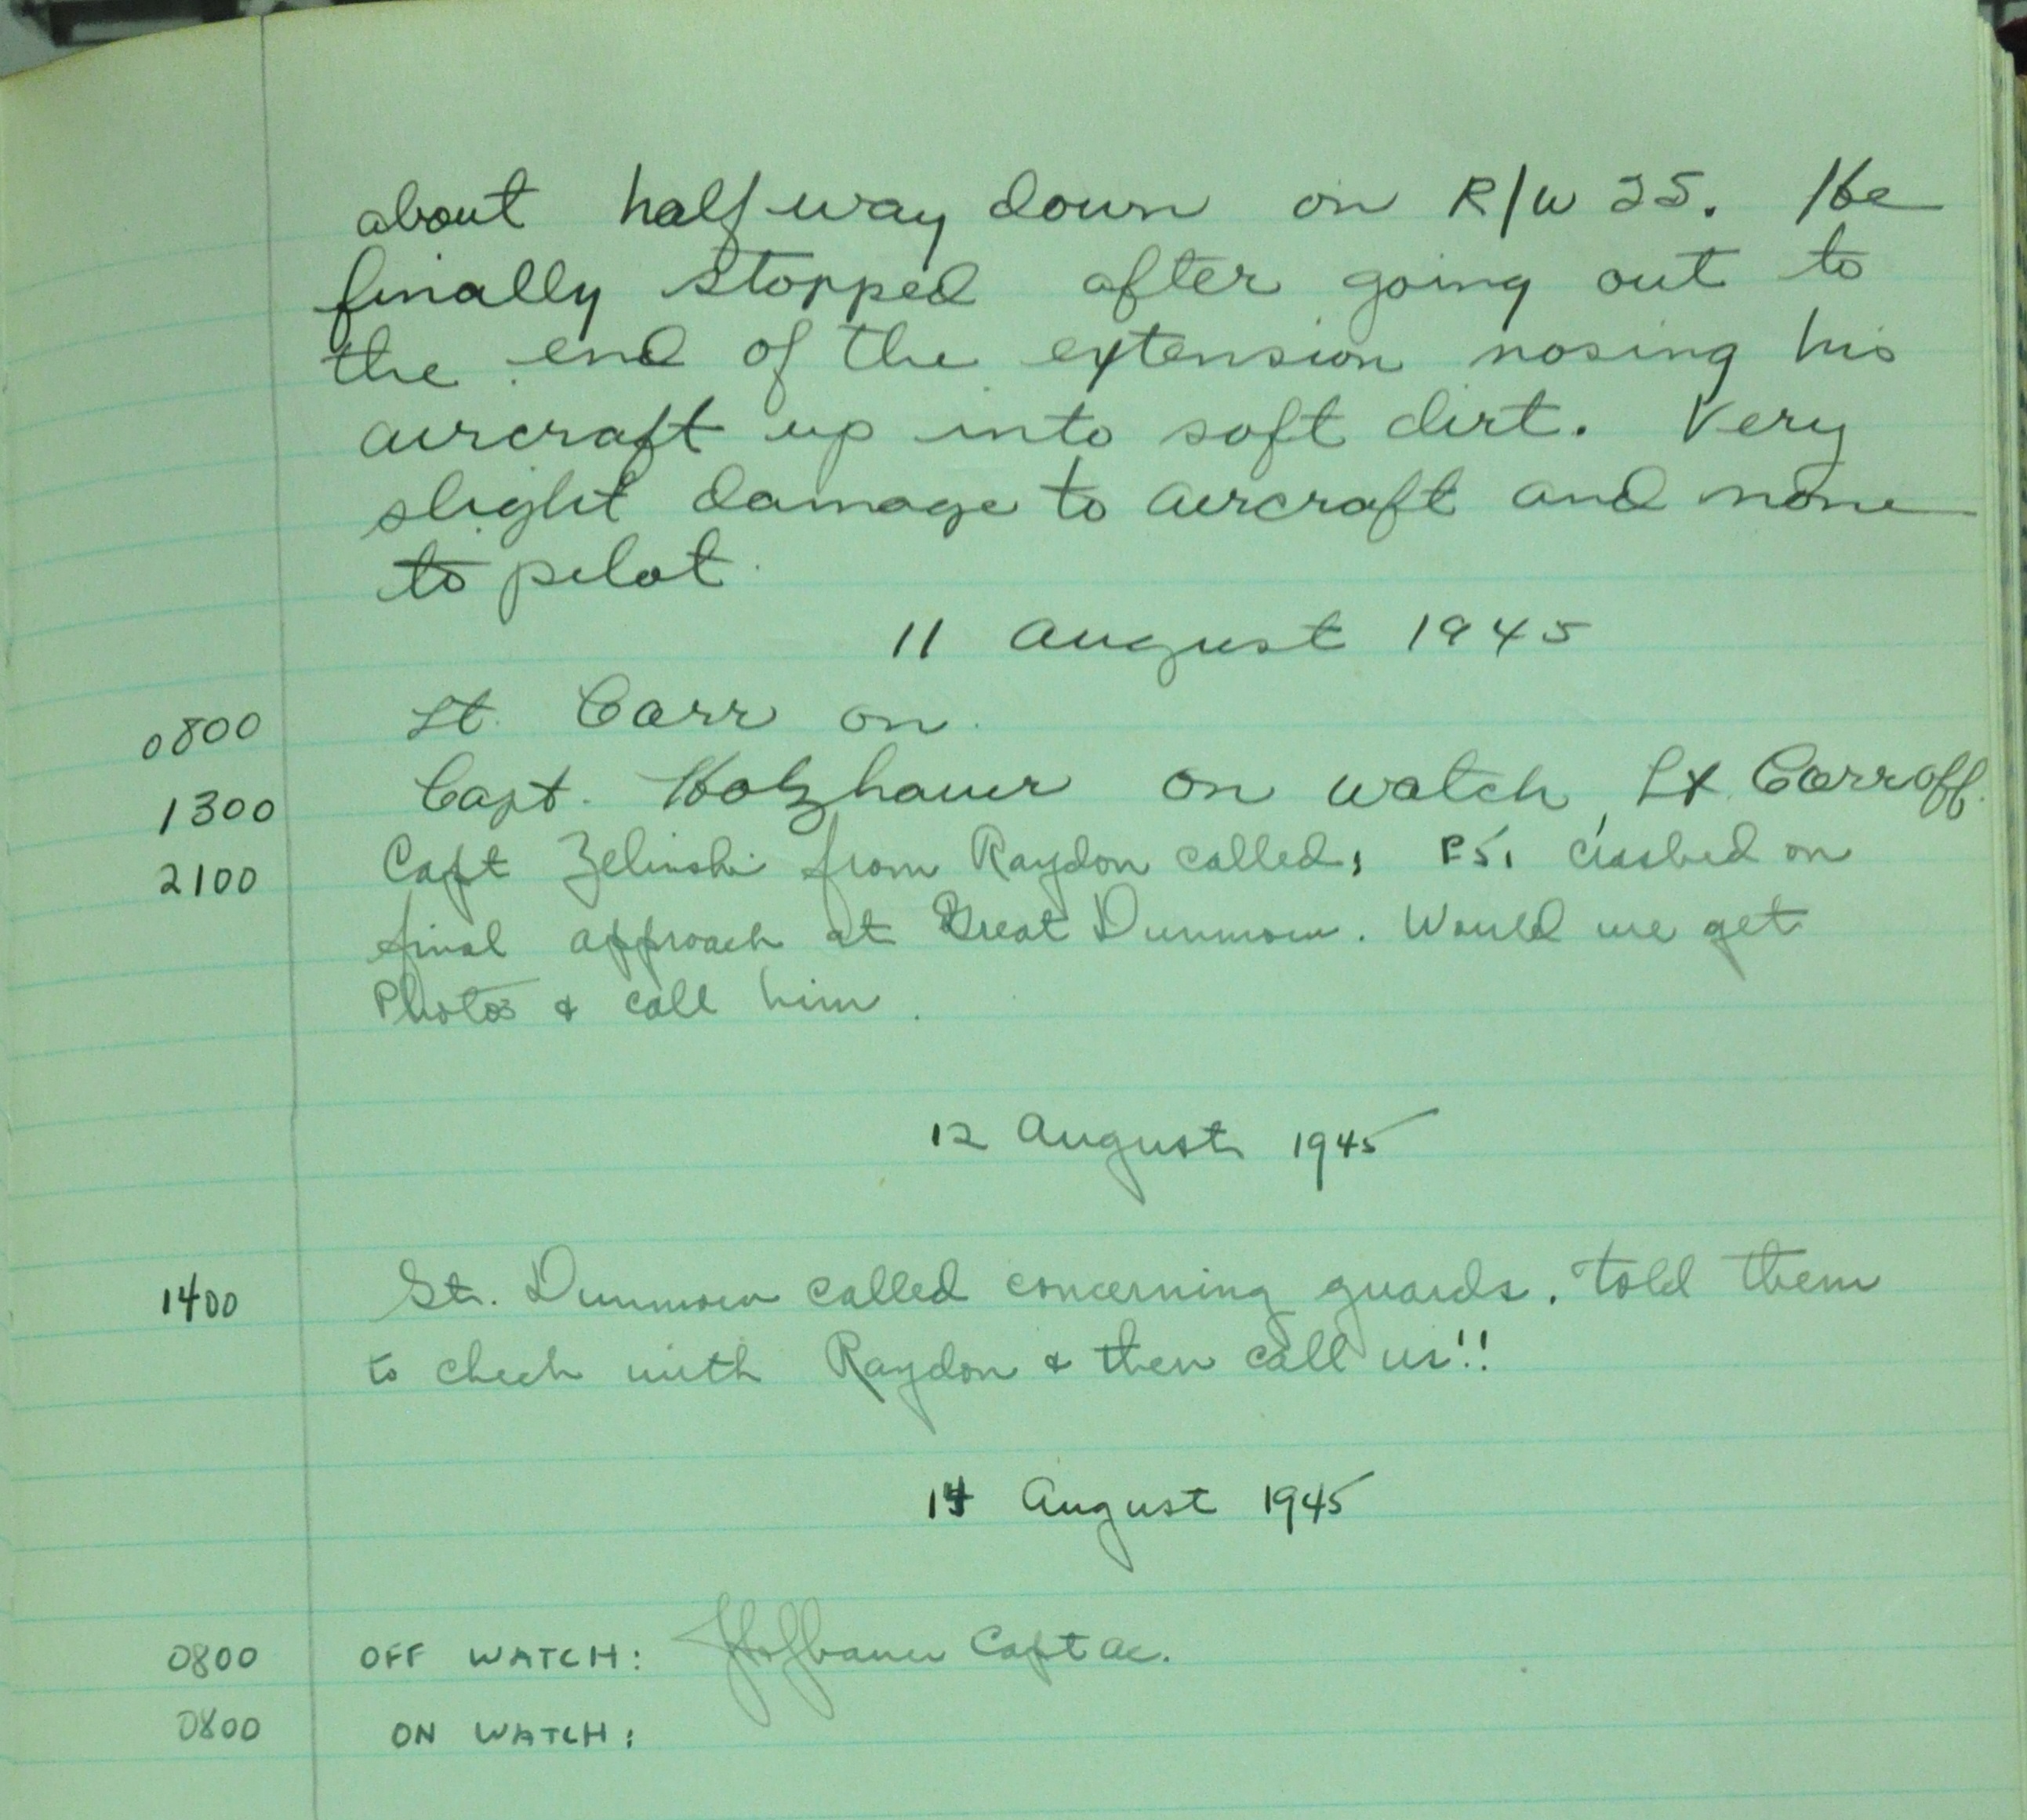 about halfway down on R/W 25. He
finally stopped after going out to
the end of the extension nosing his
aircraft up into soft dirt. Very
slight damage to aircraft and none
to pilot.
11 August 1945
0800 Lt. Carr on.
1300 Capt. Holzhauer on watch, Lt. Carr off.
2100 Capt Zelinski from Raydon called, P51 crashed on
final approach at Great Dunmow. Would we get
Photos & call him.
12 August 1945
1400 Gt. Dunmow called concerning guards. Told them
to check with Raydon & then call us!!
14 August 1945
0800 OFF WATCH: Capt AC.
0800 ON WATCH: